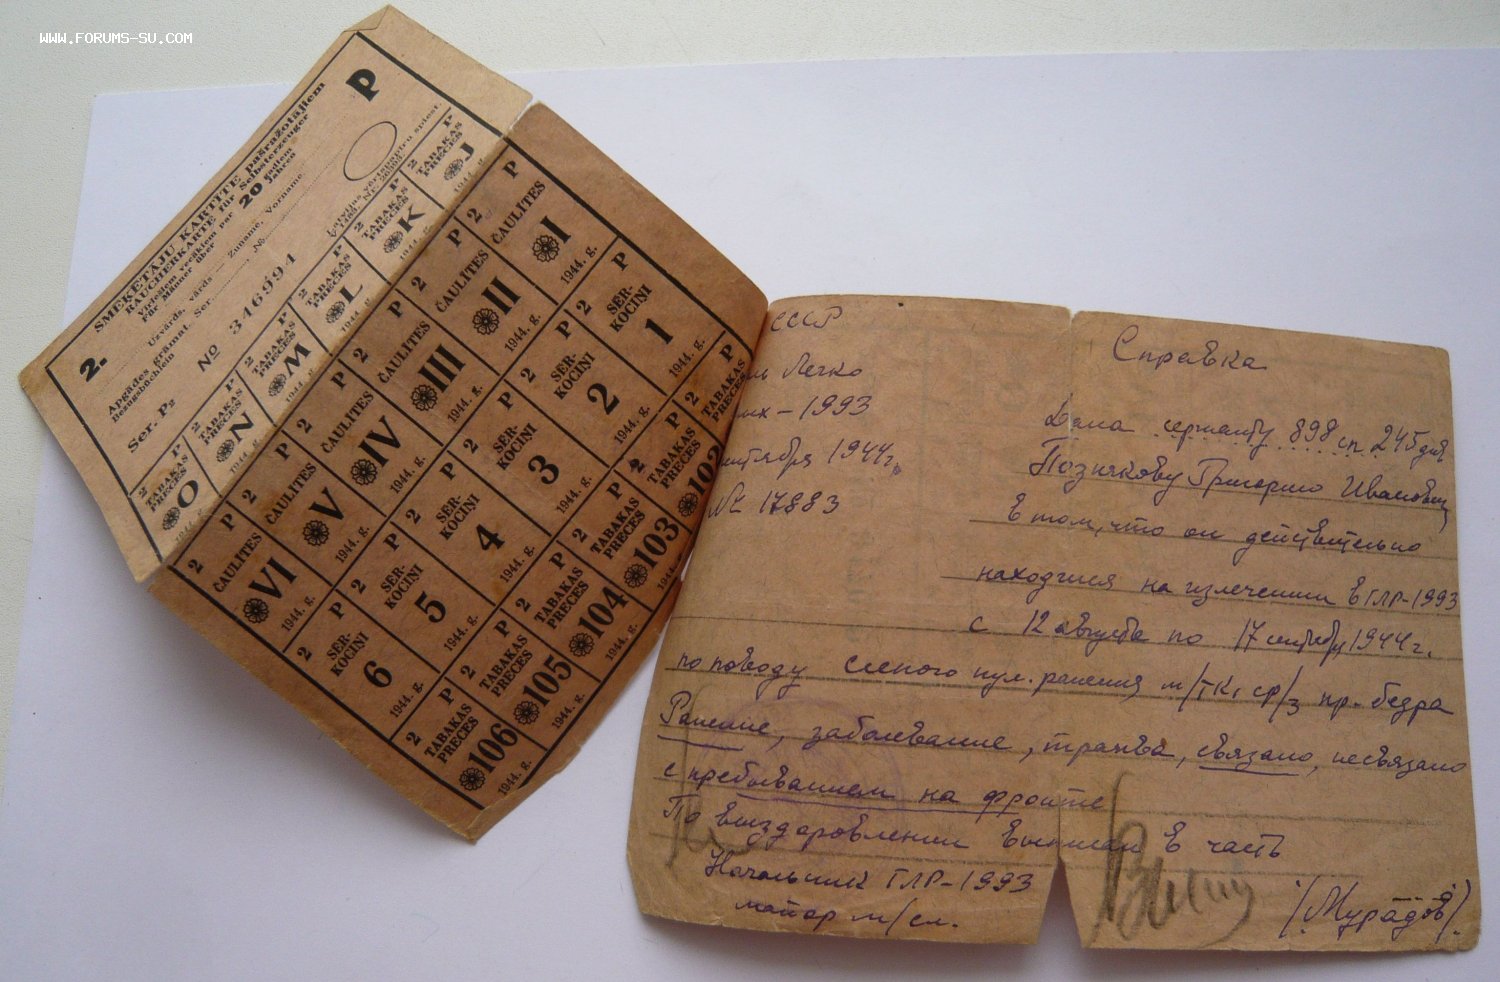 WWW.FORUMS-SU.COM
2.
SMĒĶĒTĀJU KARTĪTE pašražotājiem
RAUCHERKARTE für Selbsterzeuger
P
vīriešiem vecākiem par 20 gadiem
Für Männer über 20 Jahren
Uzvārds, vārds — Zuname, Vorname
Apgādes grāmat. Ser. No
Bezugsbüchlein
Ser. P2 No 346994
2 P TABAKAS PRECES O 1944. g.
2 P TABAKAS PRECES N 1944. g.
2 P TABAKAS PRECES M 1944. g.
2 P TABAKAS PRECES L 1944. g.
2 P TABAKAS PRECES K 1944. g.
2 P TABAKAS PRECES J 1944. g.
2 P ČAULĪTES VI 1944. g.
2 P ČAULĪTES V 1944. g.
2 P ČAULĪTES IV 1944. g.
2 P ČAULĪTES III 1944. g.
2 P ČAULĪTES II 1944. g.
2 P ČAULĪTES I 1944. g.
2 P SĒR-KOCIŅI 6 1944. g.
2 P SĒR-KOCIŅI 5 1944. g.
2 P SĒR-KOCIŅI 4 1944. g.
2 P SĒR-KOCIŅI 3 1944. g.
2 P SĒR-KOCIŅI 2 1944. g.
2 P SĒR-KOCIŅI 1 1944. g.
2 P TABAKAS PRECES 106 1944. g.
2 P TABAKAS PRECES 105 1944. g.
2 P TABAKAS PRECES 104 1944. g.
2 P TABAKAS PRECES 103 1944.
P TABAKAS PRECES 102
P TABAKAS PRECES
СССР
Легко
-1993
1944г.
№ 17883
Справка
Дана сержанту 898 сп 245 див
Познякову Григорию Ивановичу
в том, что он действительно
находился на излечении в ГЛР-1993
с 12 августа по 17 сентября 1944г.
по поводу слепого пул. ранения м/тк, ср/з пр. бедра
Ранение, заболевание, травма, связано, несвязано
с пребыванием на фронте
По выздоровлении выписан в часть
Начальник ГЛР-1993
майор м/сл.
/Мурадов/.